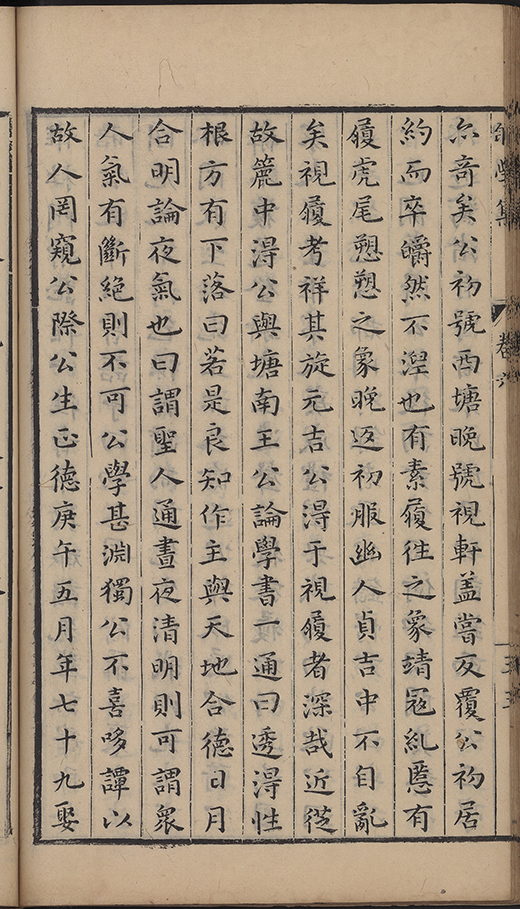 學集 卷六
尒奇矣公初號西塘晚號視軒盖嘗反覆公初居
約而卒皭然不湼也有素履徃之象靖寇糺慝有
履虎尾愬愬之象晚返初服幽人貞吉中不自亂
矣視履考祥其旋元吉公淂于視履者深哉近從
故簏中淂公與塘南王公論學書一通曰透淂性
根方有下落曰若是良知作主與天地合德日月
合明論夜氣也曰謂聖人通晝夜清明則可謂衆
人氣有斷絶則不可公學甚淵獨公不喜哆譚以
故人罔窺公際公生正德庚午五月年七十九娶